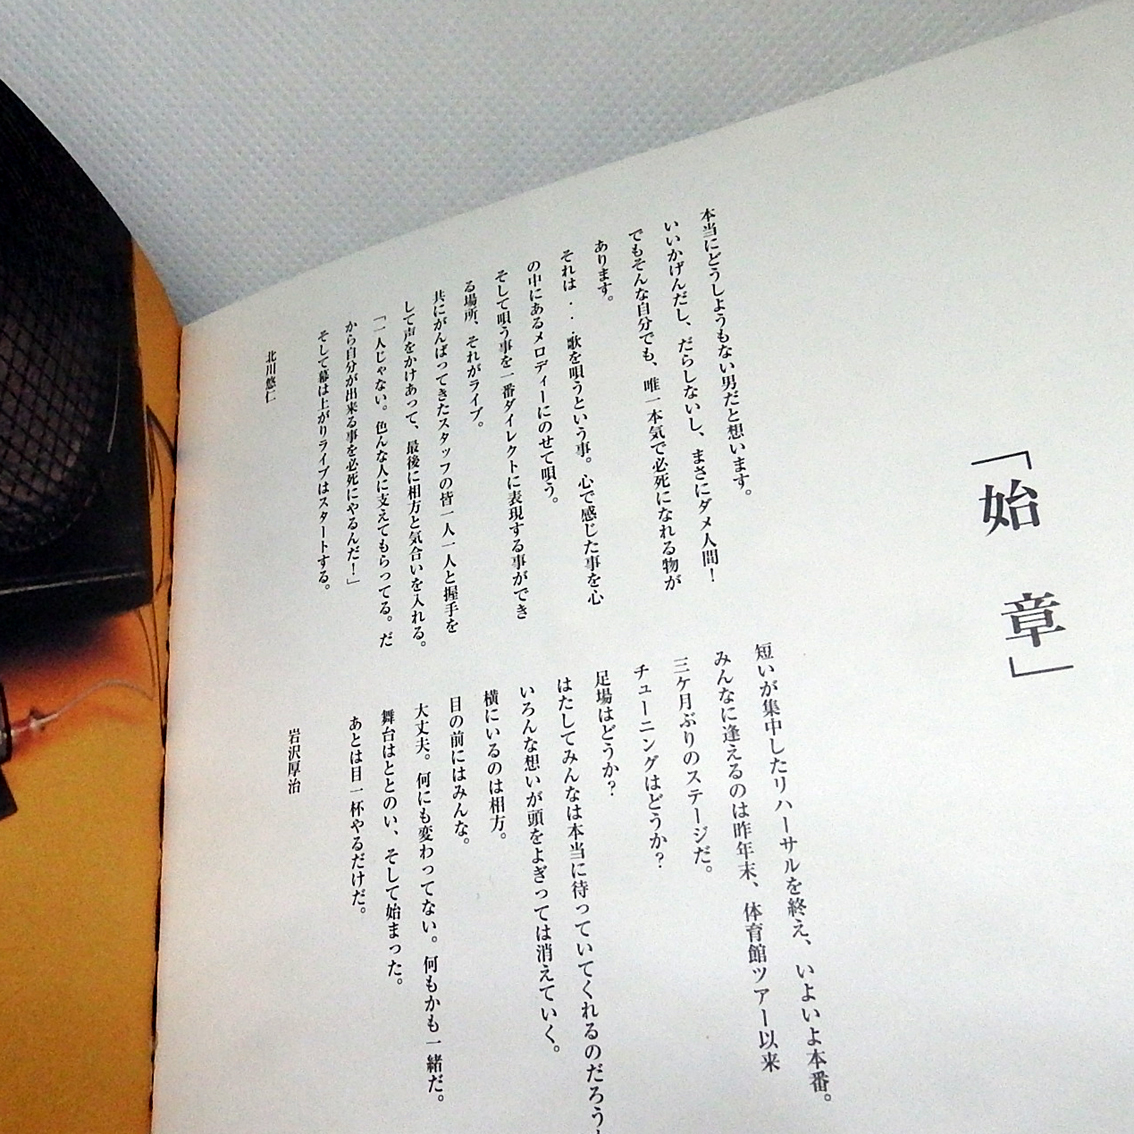 「始　章」
本当にどうしようもない男だと想います。
いいかげんだし、だらしないし、まさにダメ人間！
でもそんな自分でも、唯一本気で必死になれる物が
あります。
それは・・・歌を唄うという事。心で感じた事を心
の中にあるメロディーにのせて唄う。
そして唄う事を一番ダイレクトに表現する事ができ
る場所、それがライブ。
共にがんばってきたスタッフの皆一人一人と握手を
して声をかけあって、最後に相方と気合いを入れる。
「一人じゃない。色んな人に支えてもらってる。だ
から自分が出来る事を必死にやるんだ！」
そして幕は上がりライブはスタートする。
北川悠仁
短いが集中したリハーサルを終え、いよいよ本番。
みんなに逢えるのは昨年末、体育館ツアー以来
三ケ月ぶりのステージだ。
チューニングはどうか？
足場はどうか？
はたしてみんなは本当に待っていてくれるのだろう
いろんな想いが頭をよぎっては消えていく。
横にいるのは相方。
目の前にはみんな。
大丈夫。何にも変わってない。何もかも一緒だ。
舞台はととのい、そして始まった。
あとは目一杯やるだけだ。
岩沢厚治